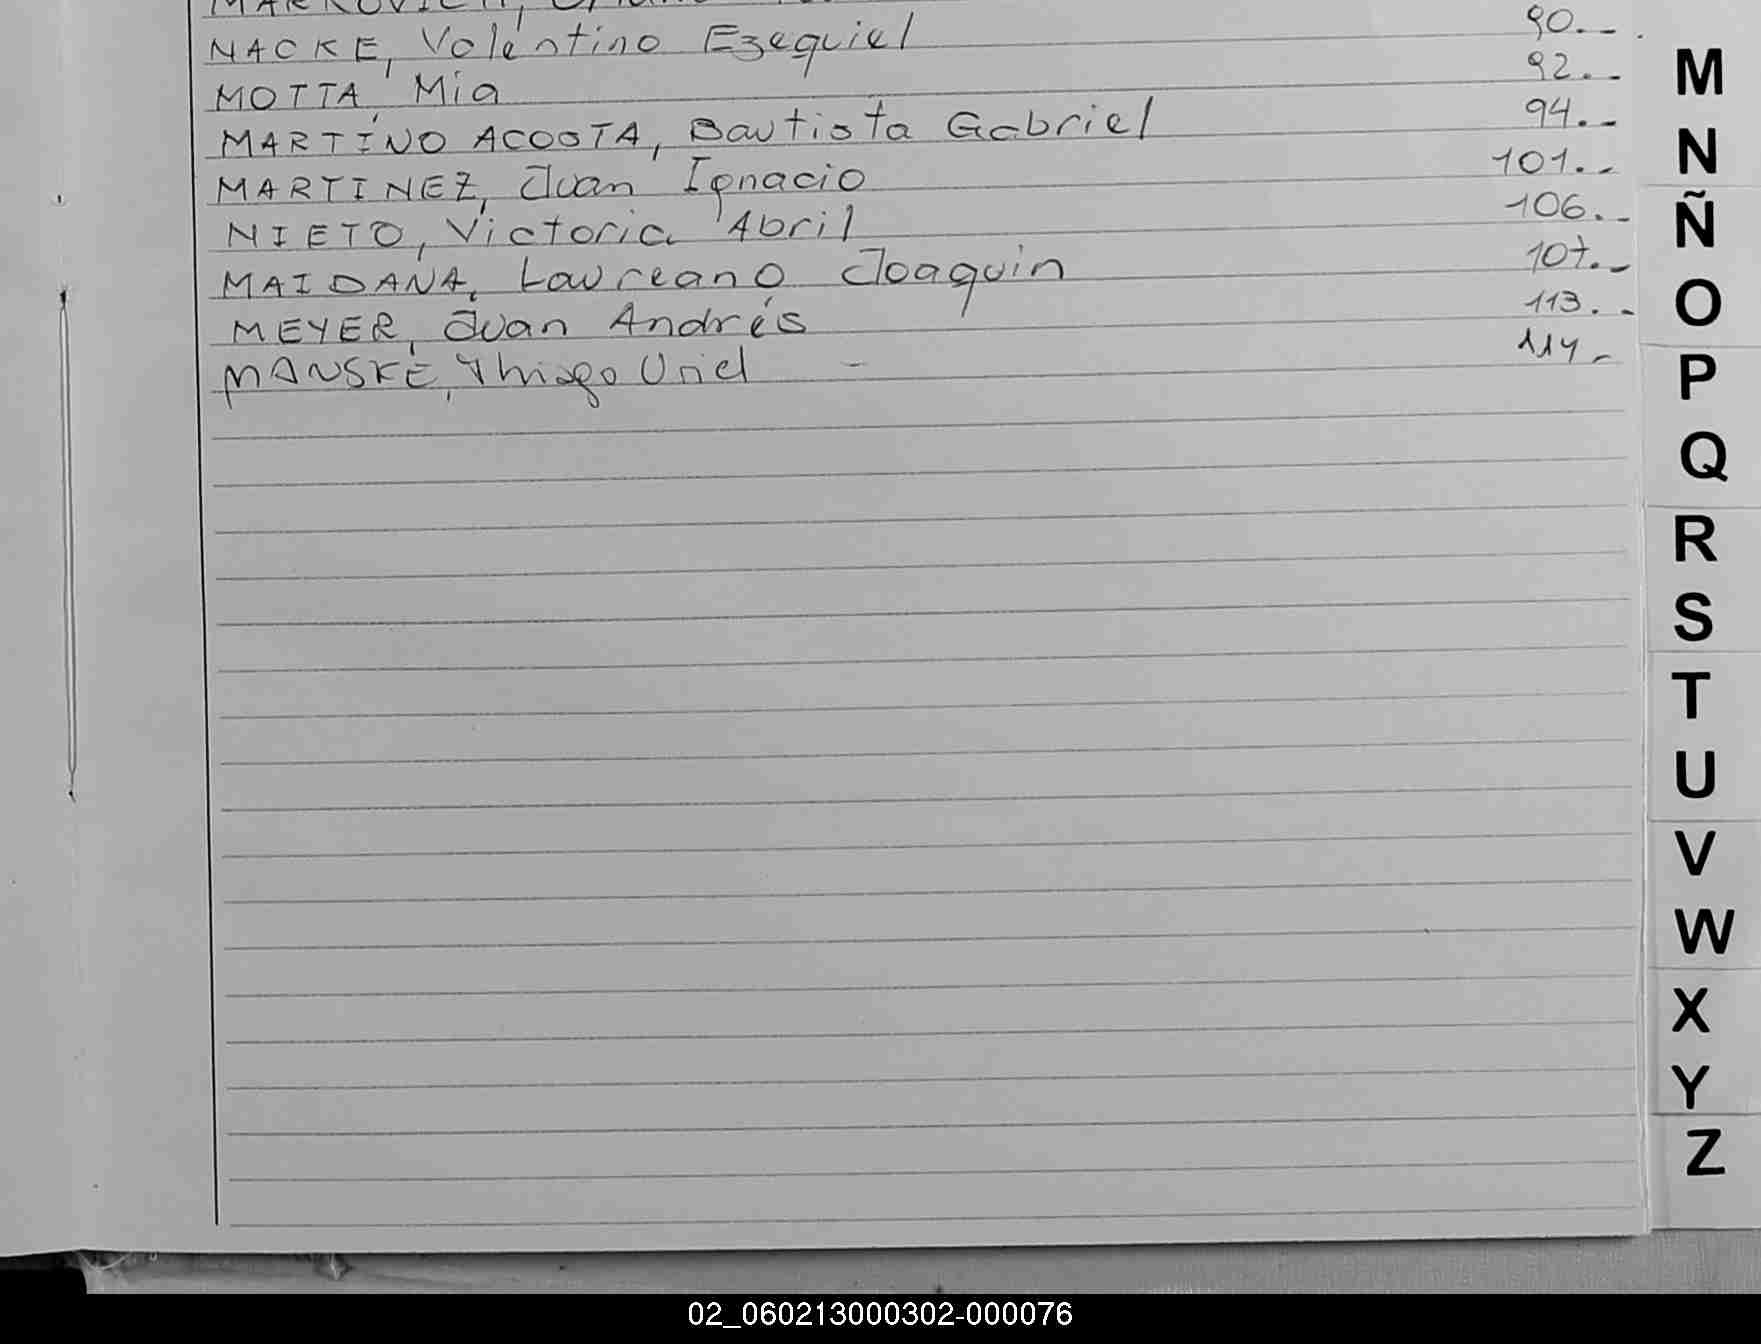 MARKOVICH,
NACKE, Valentino Ezequiel 90.--.
MOTTA, Mia 92.--
MARTÍNO ACOSTA, Bautista Gabriel 94.--
MARTINEZ, Juan Ignacio 101.--
NIETO, Victoria Abril 106.--
MAIDANA, Laureano Joaquin 107.--
MEYER, Juan Andrés 113.--
MANSKE, Thiago Uriel - 114.-
M
N
Ñ
O
P
Q
R
S
T
U
V
W
X
Y
Z
02_060213000302-000076